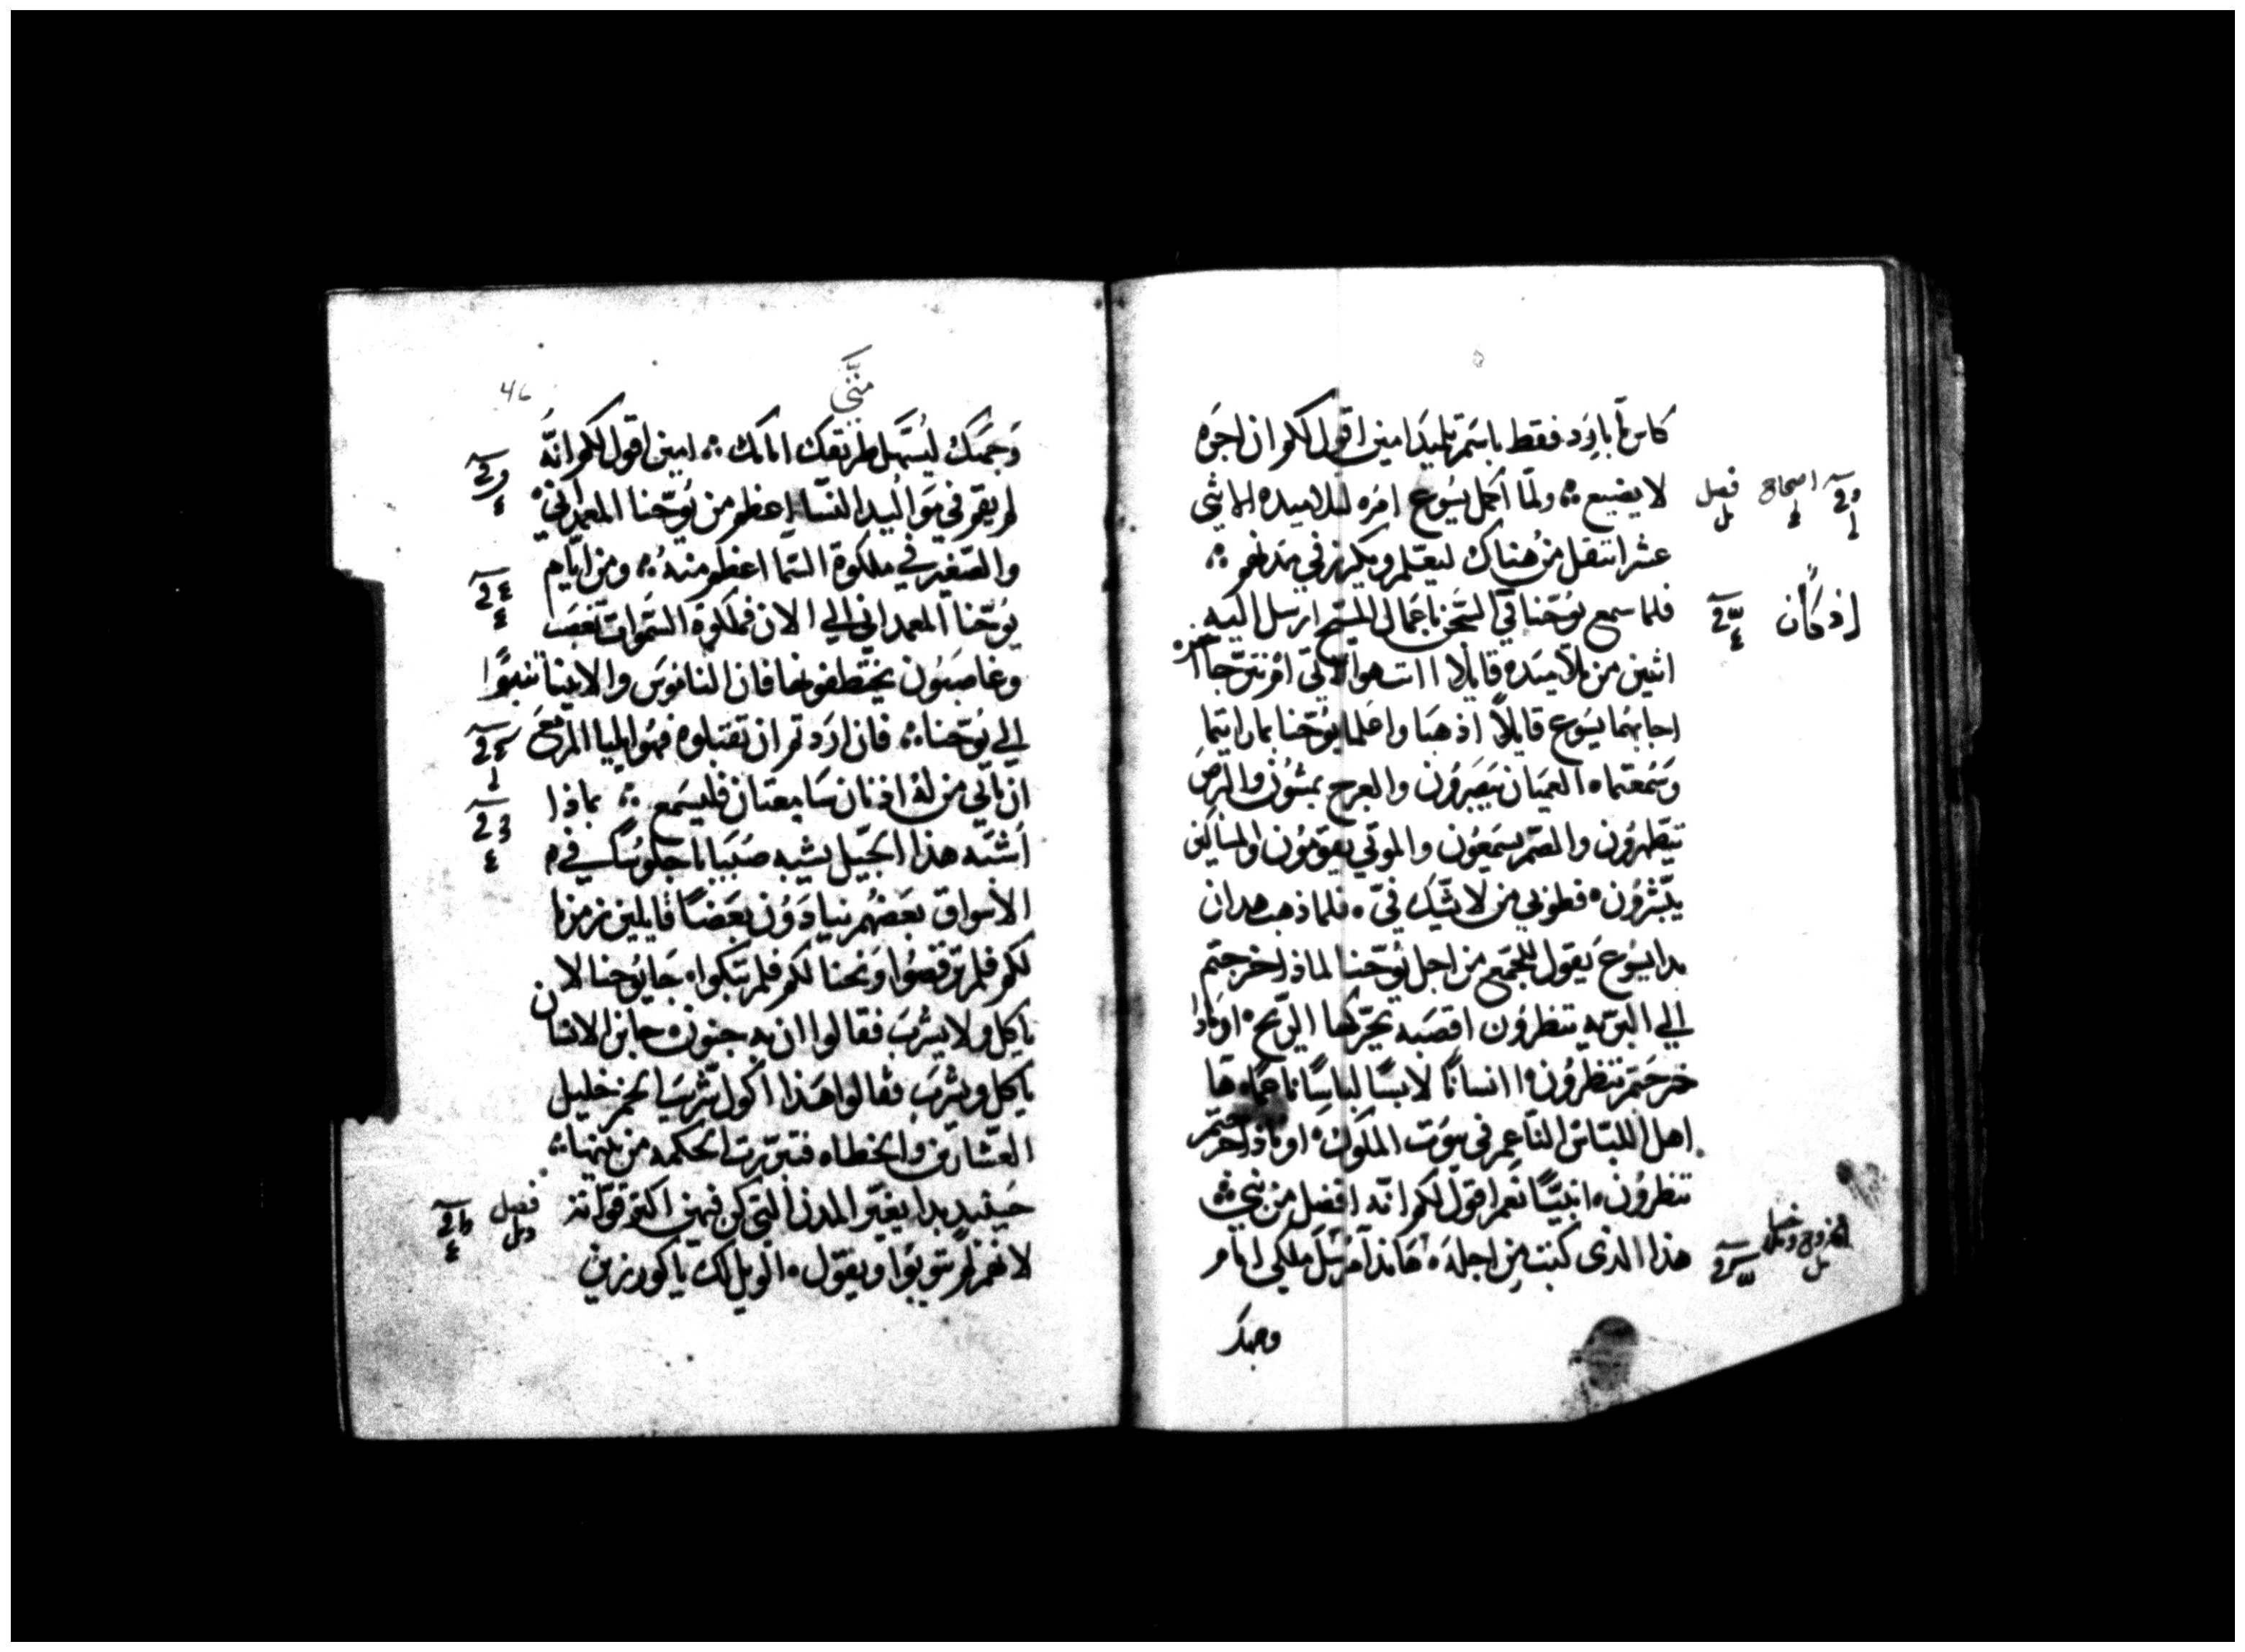 كاس ما بارد فقط باسم تلميد امين اقول لكم ان اجره
لا يضيع ولما اكمل يسوع امره لتلاميده الاثني
عشر انتقل من هناك ليعلم ويكرز في مدنهم
فلما سمع يوحنا في السجن باعمال المسيح ارسل اليه
اثنين من تلاميده قايلا اانت هو الاتي ام نترجا اخر
اجابهما يسوع قايلا اذهبا واعلما يوحنا بما رايتما
وسمعتماه العميان يبصرون والعرج يمشون والبرص
يتطهرون والصم يسمعون والموتي يقومون والمساكين
يبشرون فطوبي من لا يشك في فلما ذهب هدان
بدا يسوع يقول للجميع من اجل يوحنا لماذا خرجتم
الي البريه تنظرون اقصبه تحركها الريح او ماذا
خرجتم تنظرون اانسانا لابسا لباسا ناعما ها
اهل اللباس الناعم في بيوت الملوك او ماذا خرجتم
تنظرون انبيا نعم اقول لكم انه افضل من نبي
هذا الذي كتبت من اجله هانذا مرسل ملكي امام
وجهك
فصل
اصحاح
اذ كان
متي
46
وجهك ليسهل طريقك امامك امين اقول لكم انه
لم يقم في مواليد النسا اعظم من يوحنا المعمداني
والصغير في ملكوة السما اعظم منه ومن ايام
يوحنا المعمداني الي الان فملكوة السموات تغصب
وغاصبون يختطفونها فان الناموس والانبيا تنبوا
الي يوحنا فان اردتم ان تقبلوه فهو ايليا المزمع
ان ياتي من له اذنان سامعتان فليسمع بماذا
اشبه هذا الجيل يشبه صبيانا جلوسا في
الاسواق بعضهم ينادون بعضا قايلين زمرنا
لكم فلم ترقصوا ونحنا لكم فلم تبكوا جا يوحنا لا
ياكل ولا يشرب فقالوا ان به جنون جا ابن الانسان
ياكل ويشرب فقالوا هذا اكول شريب الخمر خليل
العشارين والخطاه فتبررت الحكمه من بنيها
حينيد بدا يعير المدن التي كن فيهن اكثر قواته
لانهم لم يتوبوا ويقول الويل لك يا كورزين
فصل